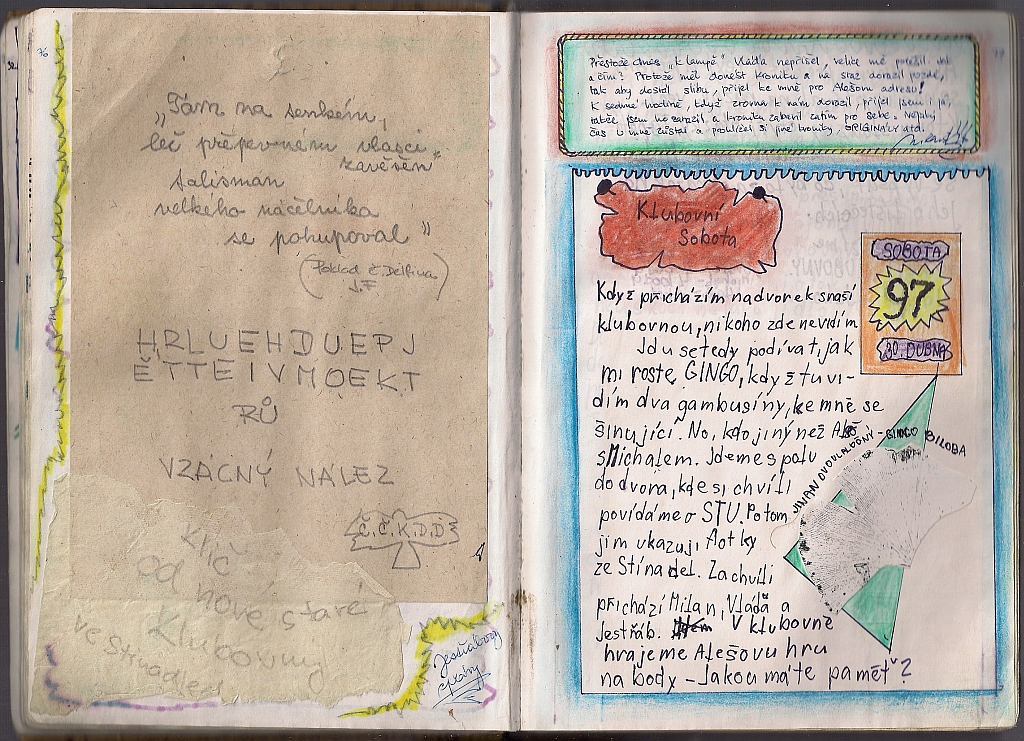 76
„Tam na tenkém,
leč přepevném vlasci
zavěšen
talisman
velkého náčelníka
se pohupoval"
(Poklad č. Delfína
J.F)
HRLUEHDUEPJ
ĚTTĚIVMOEKT
RŮ
VZACNÝ NÁLEZ
Č.Č.K.D.D
Klíč
od nové staré
Klubovny
ve Stínadlech
Jestřábovy
77
Přestože dnes „k lampě" Vláďa nepřišel, velice mě potěšil. Jak
a čím? Protože měl donést kroniku a na sraz dorazil pozdě,
tak aby dostál slibu, přijel ke mně pro Alešovu adresu!
K sedmé hodině, když zrovna k nám dorazil, přijel jsem i já,
takže jsem ho zarazil a kroniku zabavil zatím pro sebe. Nějaký
čas u mne zůstal a prohlížel si jiné kroniky, ORIGINÁLY atd.
Klubovní
Sobota
SOBOTA
97
30. DUBNA
Když přicházím na dvorek s naší
klubovnou, nikoho zde nevidím
Jdu se tedy podívat, jak
mi roste GINGO, když tu vi-
dím dva gambusíny, ke mně se
šinující. No, kdo jiný než Aleš
s Michalem. Jdeme spolu
do dvora, kde si chvíli
povídáme o STU. Potom
jim ukazuji fotky
ze Stínadel. Za chvíli
přichází Milan, Vláďa a
Jestřáb. V klubovně
hrajeme Alešovu hru
na body - Jakou máte paměť?
JINAN DVOULALOČNÝ - GINGO BILOBA